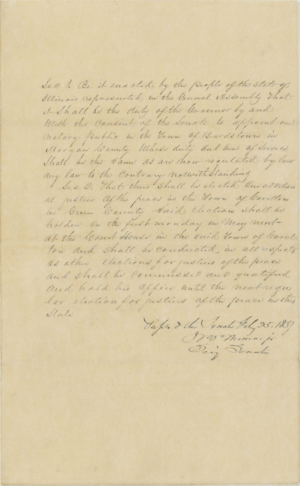 Sec 1. Be it enacted by the people of the state of
Illinois represented in the General Assembly That
it Shall be the duty of the Governor by and
With the Consent of the Senate to appoint one
Notary Public in the Town of Beardstown in
Morgan County Whose duty and term of Service
Shall be the Same as are now regulated by law
any law to the Contrary notwithstanding
Sec 2. That there Shall be elected an additional
justice of the peace in the Town of Carrollton
in Green County Said election shall be
holden on the first monday in May next
at the Court House in the said Town of Carroll
ton and shall be conducted in all respects
as other elections for justices of the peace
and shall be commissioned and qualified
and hold his office until the next regu
lar election for justices of the peace in this
State
Passed the Senate Feby 25. 1837
Senate